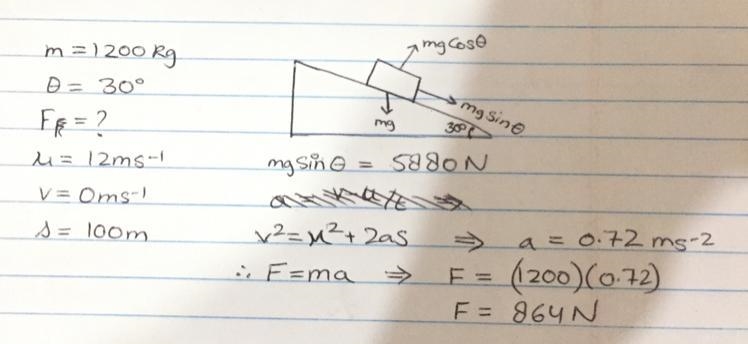 m = 1200 kg
θ = 30°
FR = ?
u = 12ms-1
v = 0ms-1
s = 100m
mgcosθ
mgsinθ
mg
30°
mgsinθ = 5880N
v² = u² + 2as ⇒ a = 0.72 ms-2
∴ F = ma ⇒ F = (1200)(0.72)
F = 864N